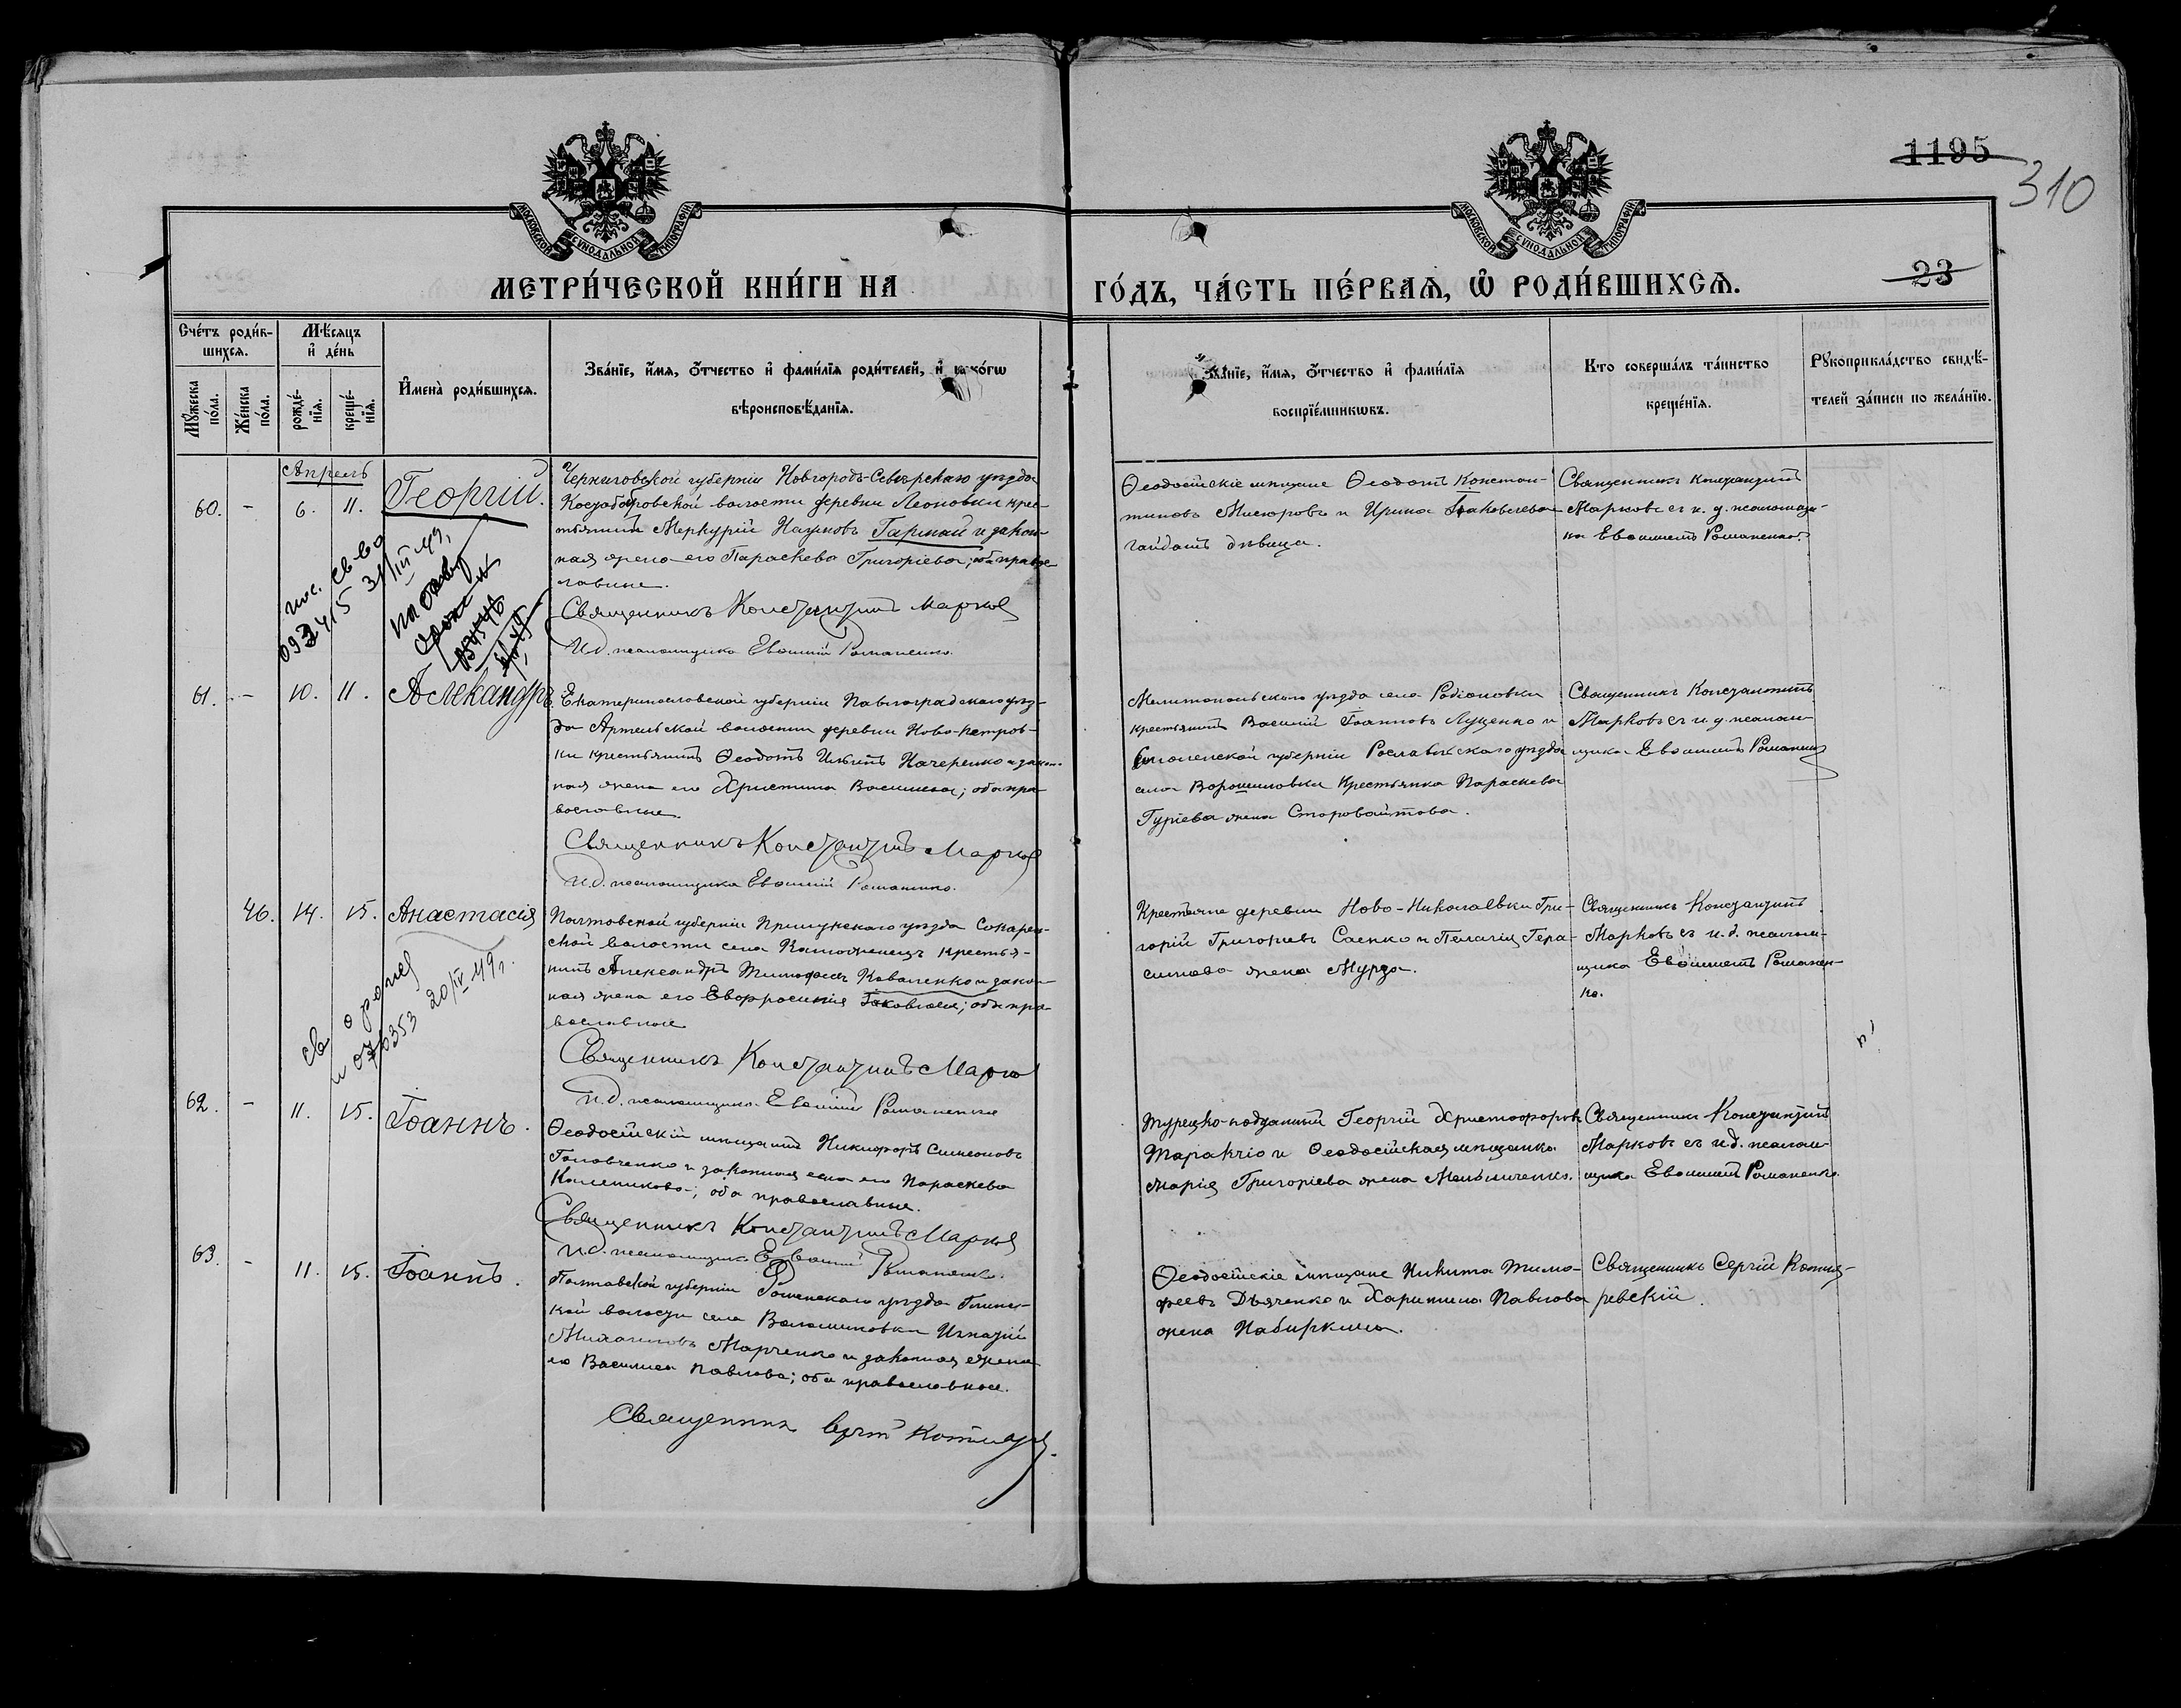 1195
310
МОСКОВСКОЙ СѴНОДАЛЬНОЙ ТИПОГРАФІИ
МОСКОВСКОЙ СѴНОДАЛЬНОЙ ТИПОГРАФІИ
МЕТРИ́ЧЕСКОЙ КНИ́ГИ НА
ГО́ДЪ, ЧА́СТЬ ПЕ́РВАѦ, Ѡ҆ РОДИ́ВШИХСѦ.
23
Сче́тъ роди́в-
шихсѧ.
Мꙋ́жеска по́ла.
Же́нска по́ла.
Мѣ́сѧцъ
и҆ де́нь
рожде́-
нїѧ.
креще́-
нїѧ.
И҆мена̀ роди́вшихсѧ.
Зва́нїе, и҆́мѧ, ѻ҆́тчество и҆ фами́лїѧ роди́телей, и҆ како́гѡ
вѣроисповѣ́данїѧ.
Зва́нїе, и҆́мѧ, ѻ҆́тчество и҆ фами́лїѧ
воспрїе́мникѡвъ.
Кто соверша́лъ та́инство
креще́нїѧ.
Рꙋкоприкла́дство свидѣ́-
телей за́писи по жела́нїю.
Апрель
60. - 6. 11. Георгій.
Черниговской губерніи Новгородъ-Северскаго уѣзда
волости деревни Леоновки крес-
тьянинъ Меркурій Наумовъ Гармай и закон-
ная жена его Параскева Григоріева; оба право-
славные.
Священникъ Константинъ Марков
И.д. псаломщика Евѳимій Романенко.
Ѳеодосійскіе мѣщане Ѳеодотъ Констан-
тиновъ Мисюровъ и Ирина Іаковлева
Гайдатъ дѣвица.
Священникъ Константинъ
Марковъ съ и. д. псаломщи-
ка Евѳиміемъ Романенко.
31/III 49,
61. - 10. 11. Александръ
Екатеринославской губерніи Павлоградскаго уѣз-
да Артельской волости деревни Ново-Петров-
ки крестьянинъ Ѳеодотъ Ильинъ Начеренко и закон-
ная жена его Христина Васильева; оба пра-
вославные.
Священникъ Константинъ Марков
И.д. псаломщика Евѳимій Романенко.
Мелитопольскаго уѣзда села Родіоновки
крестьянинъ Василій Іоанновъ Луценко и
Смоленской губерніи Рославльскаго уѣзда
села Ворошиловки Крестьянка Параскева
Гуріева жена Старовойтова.
Священникъ Константинъ
Марковъ съ и. д. псалом-
щика Евѳиміемъ Романенко
46. 14. 15. Анастасія
Полтовской губерніи Прилукскаго уѣзда Сокирен-
ской волости села крестья-
нинъ Александръ Тимофеевъ Коваленко и закон-
ная жена его Евфросинія Іаковлева; оба пра-
вославные
Священникъ Константинъ Марков
И.д. псаломщика Евѳимій Романенко
Крестьяне деревни Ново-Николаевки Гри-
горій Григорьевъ Саенко и Пелагія Гера-
симова жена Мурза.
Священникъ Константинъ
Марковъ съ и. д. псалом-
щика Евѳиміемъ Романен-
ко.
20/IV 49 г.
62. - 11. 15. Іоаннъ.
Ѳеодосійскій мѣщанинъ Никифоръ Симеоновъ
Головченко и законная жена его Параскева
оба православные.
Священникъ Константинъ Марков
И.д. псаломщика Евѳимій Романенко.
Турецко-подданный Георгій Христофоровъ
Таракчіо и Ѳеодосійская мѣщанка
Марія Григоріева жена Мельниченко.
Священникъ Константинъ
Марковъ съ и.д. псалом-
щика Евѳиміемъ Романенко.
63. - 11. 15. Іоаннъ.
Полтавской губерніи Роменскаго уѣзда Глинс-
кой волости села Волошиновки Игнатій
Михаиловъ Марченко и законная жена
его Василиса Павлова; оба православные.
Священникъ Сергій Котляр
Ѳеодосійскіе мѣщане Никита Тимо-
феевъ Дьяченко и Харитина Павлова
жена Набиркина.
Священникъ Сергій Котля-
ревскій.